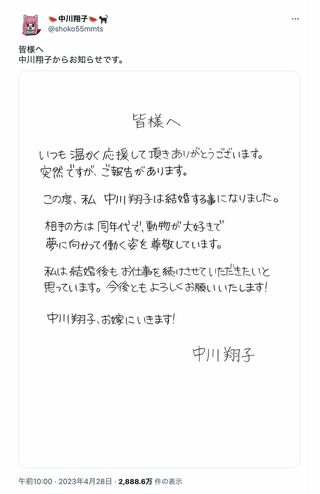 🍉中川翔子🍉🐈‍⬛
@shoko55mmts
皆様へ
中川翔子からお知らせです。
皆様へ
いつも温かく応援して頂きありがとうございます。
突然ですが、ご報告があります。
この度、私 中川翔子は結婚する事になりました。
相手の方は同年代で、動物が大好きで
夢に向かって働く姿を尊敬しています。
私は結婚後もお仕事を続けさせていただきたいと
思っています。今後ともよろしくお願いいたします!
中川翔子、お嫁にいきます!
中川翔子
午前10:00 · 2023年4月28日 · 2,888.6万 件の表示